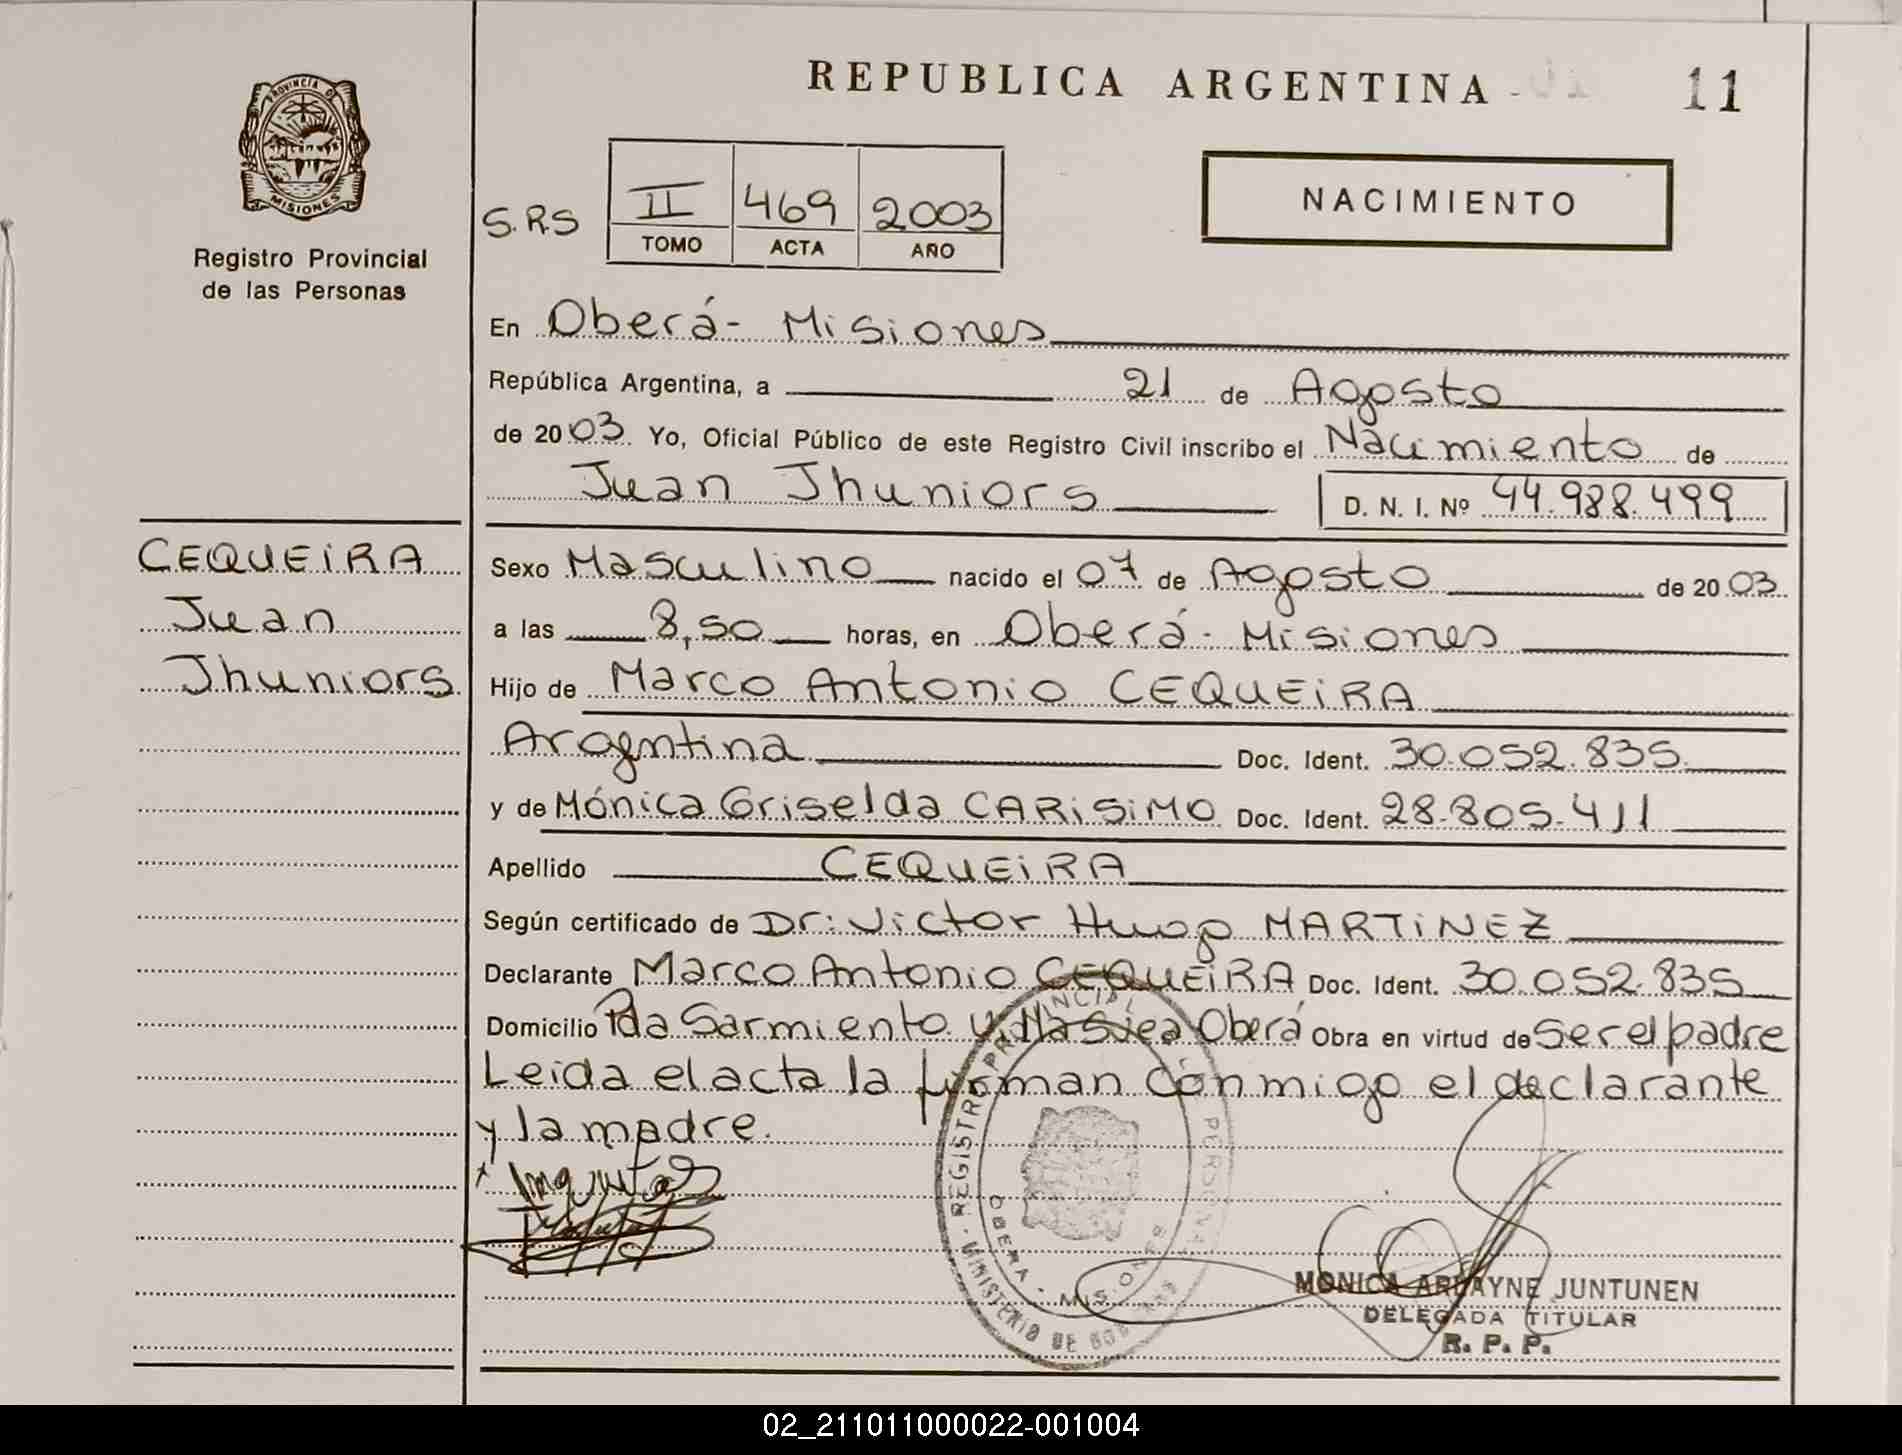 REPUBLICA ARGENTINA
11
PROVINCIA DE
MISIONES
Registro Provincial
de las Personas
S.R.S
II 469 2003
TOMO ACTA AÑO
NACIMIENTO
En Oberá- Misiones
República Argentina, a 21 de Agosto
de 2003. Yo, Oficial Público de este Registro Civil inscribo el Nacimiento de
Juan Jhuniors D. N. I. Nº 44.988.499
CEQUEIRA
Juan
Jhuniors
Sexo Masculino nacido el 07 de Agosto de 2003
a las 8,50 horas, en Oberá- Misiones
Hijo de Marco Antonio CEQUEIRA
Argentina Doc. Ident. 30.052.835
y de Mónica Griselda CARISIMO Doc. Ident. 28.805.411
Apellido CEQUEIRA
Según certificado de Dr: Victor Hugo MARTINEZ
Declarante Marco Antonio CEQUEIRA Doc. Ident. 30.052.835
Domicilio Pda Sarmiento Villa Svea Oberá Obra en virtud de Ser el padre
Leida el acta la firman conmigo el declarante
y la madre.
REGISTRO PROVINCIAL
PERSONAS
MINISTERIO DE
OBERA - MISIONES
MONICA ARLAYNE JUNTUNEN
DELEGADA TITULAR
R. P. P.
02_211011000022-001004